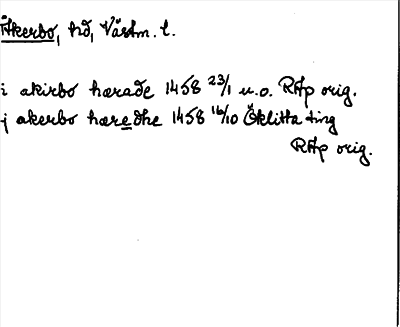 Åkerbo, hd, Västm. l.
i akirbo hærade 1458 23/1 u.o. RAp orig.
j akerbo hæredhe 1458 16/10 Öklitta ting
RAp orig.